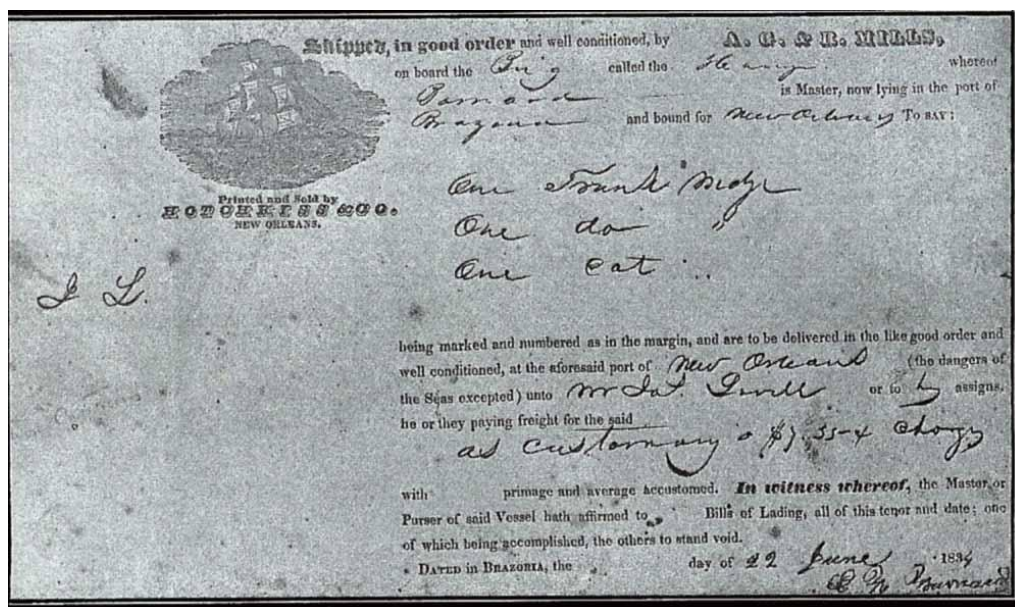 Shipped, in good order and well conditioned, by A. G. & R. MILLS,
on board the Brig called the whereof
is Master, now lying in the port of
Brazoria and bound for New Orleans TO SAY:
One Trunk Mdze
One do "
One
Printed and Sold by
HOTCHKISS & CO.
NEW ORLEANS.
J L.
being marked and numbered as in the margin, and are to be delivered in the like good order and
well conditioned, at the aforesaid port of New Orleans (the dangers of
the Seas excepted) unto Mr or to assigns,
he or they paying freight for the said
as customary
with primage and average accustomed. In witness whereof, the Master or
Purser of said Vessel hath affirmed to Bills of Lading, all of this tenor and date; one
of which being accomplished, the others to stand void.
DATED in BRAZORIA, the day of 22 June 1834